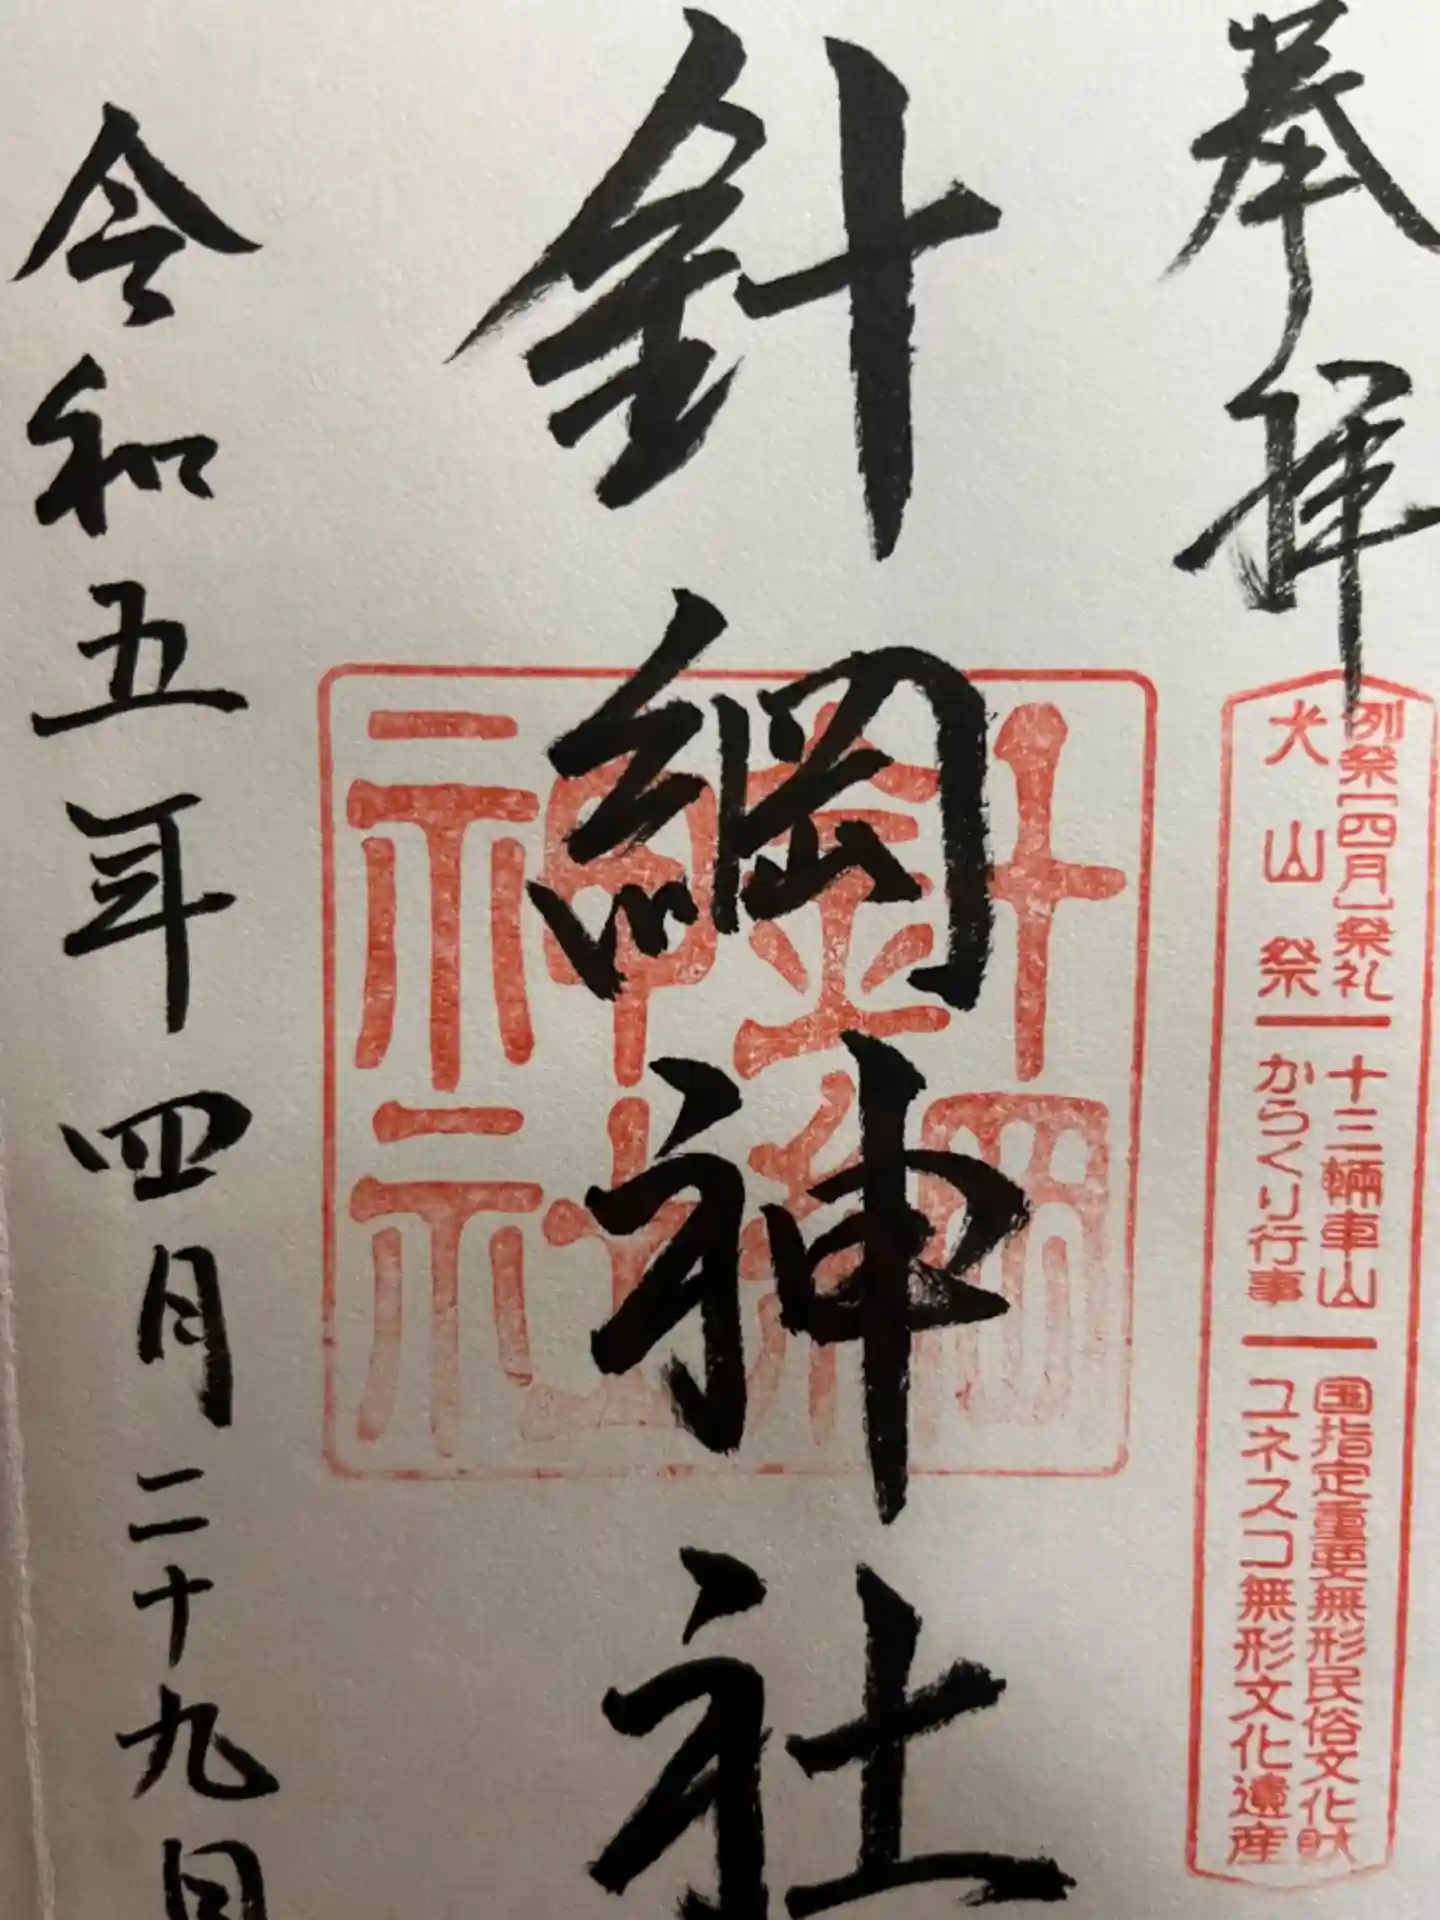 奉拝
例祭[四月]祭礼 十三輛車山 国指定重要無形民俗文化財
犬山祭 からくり行事 ユネスコ無形文化遺産
針綱神社
針綱
神社
令和五年四月二十九日